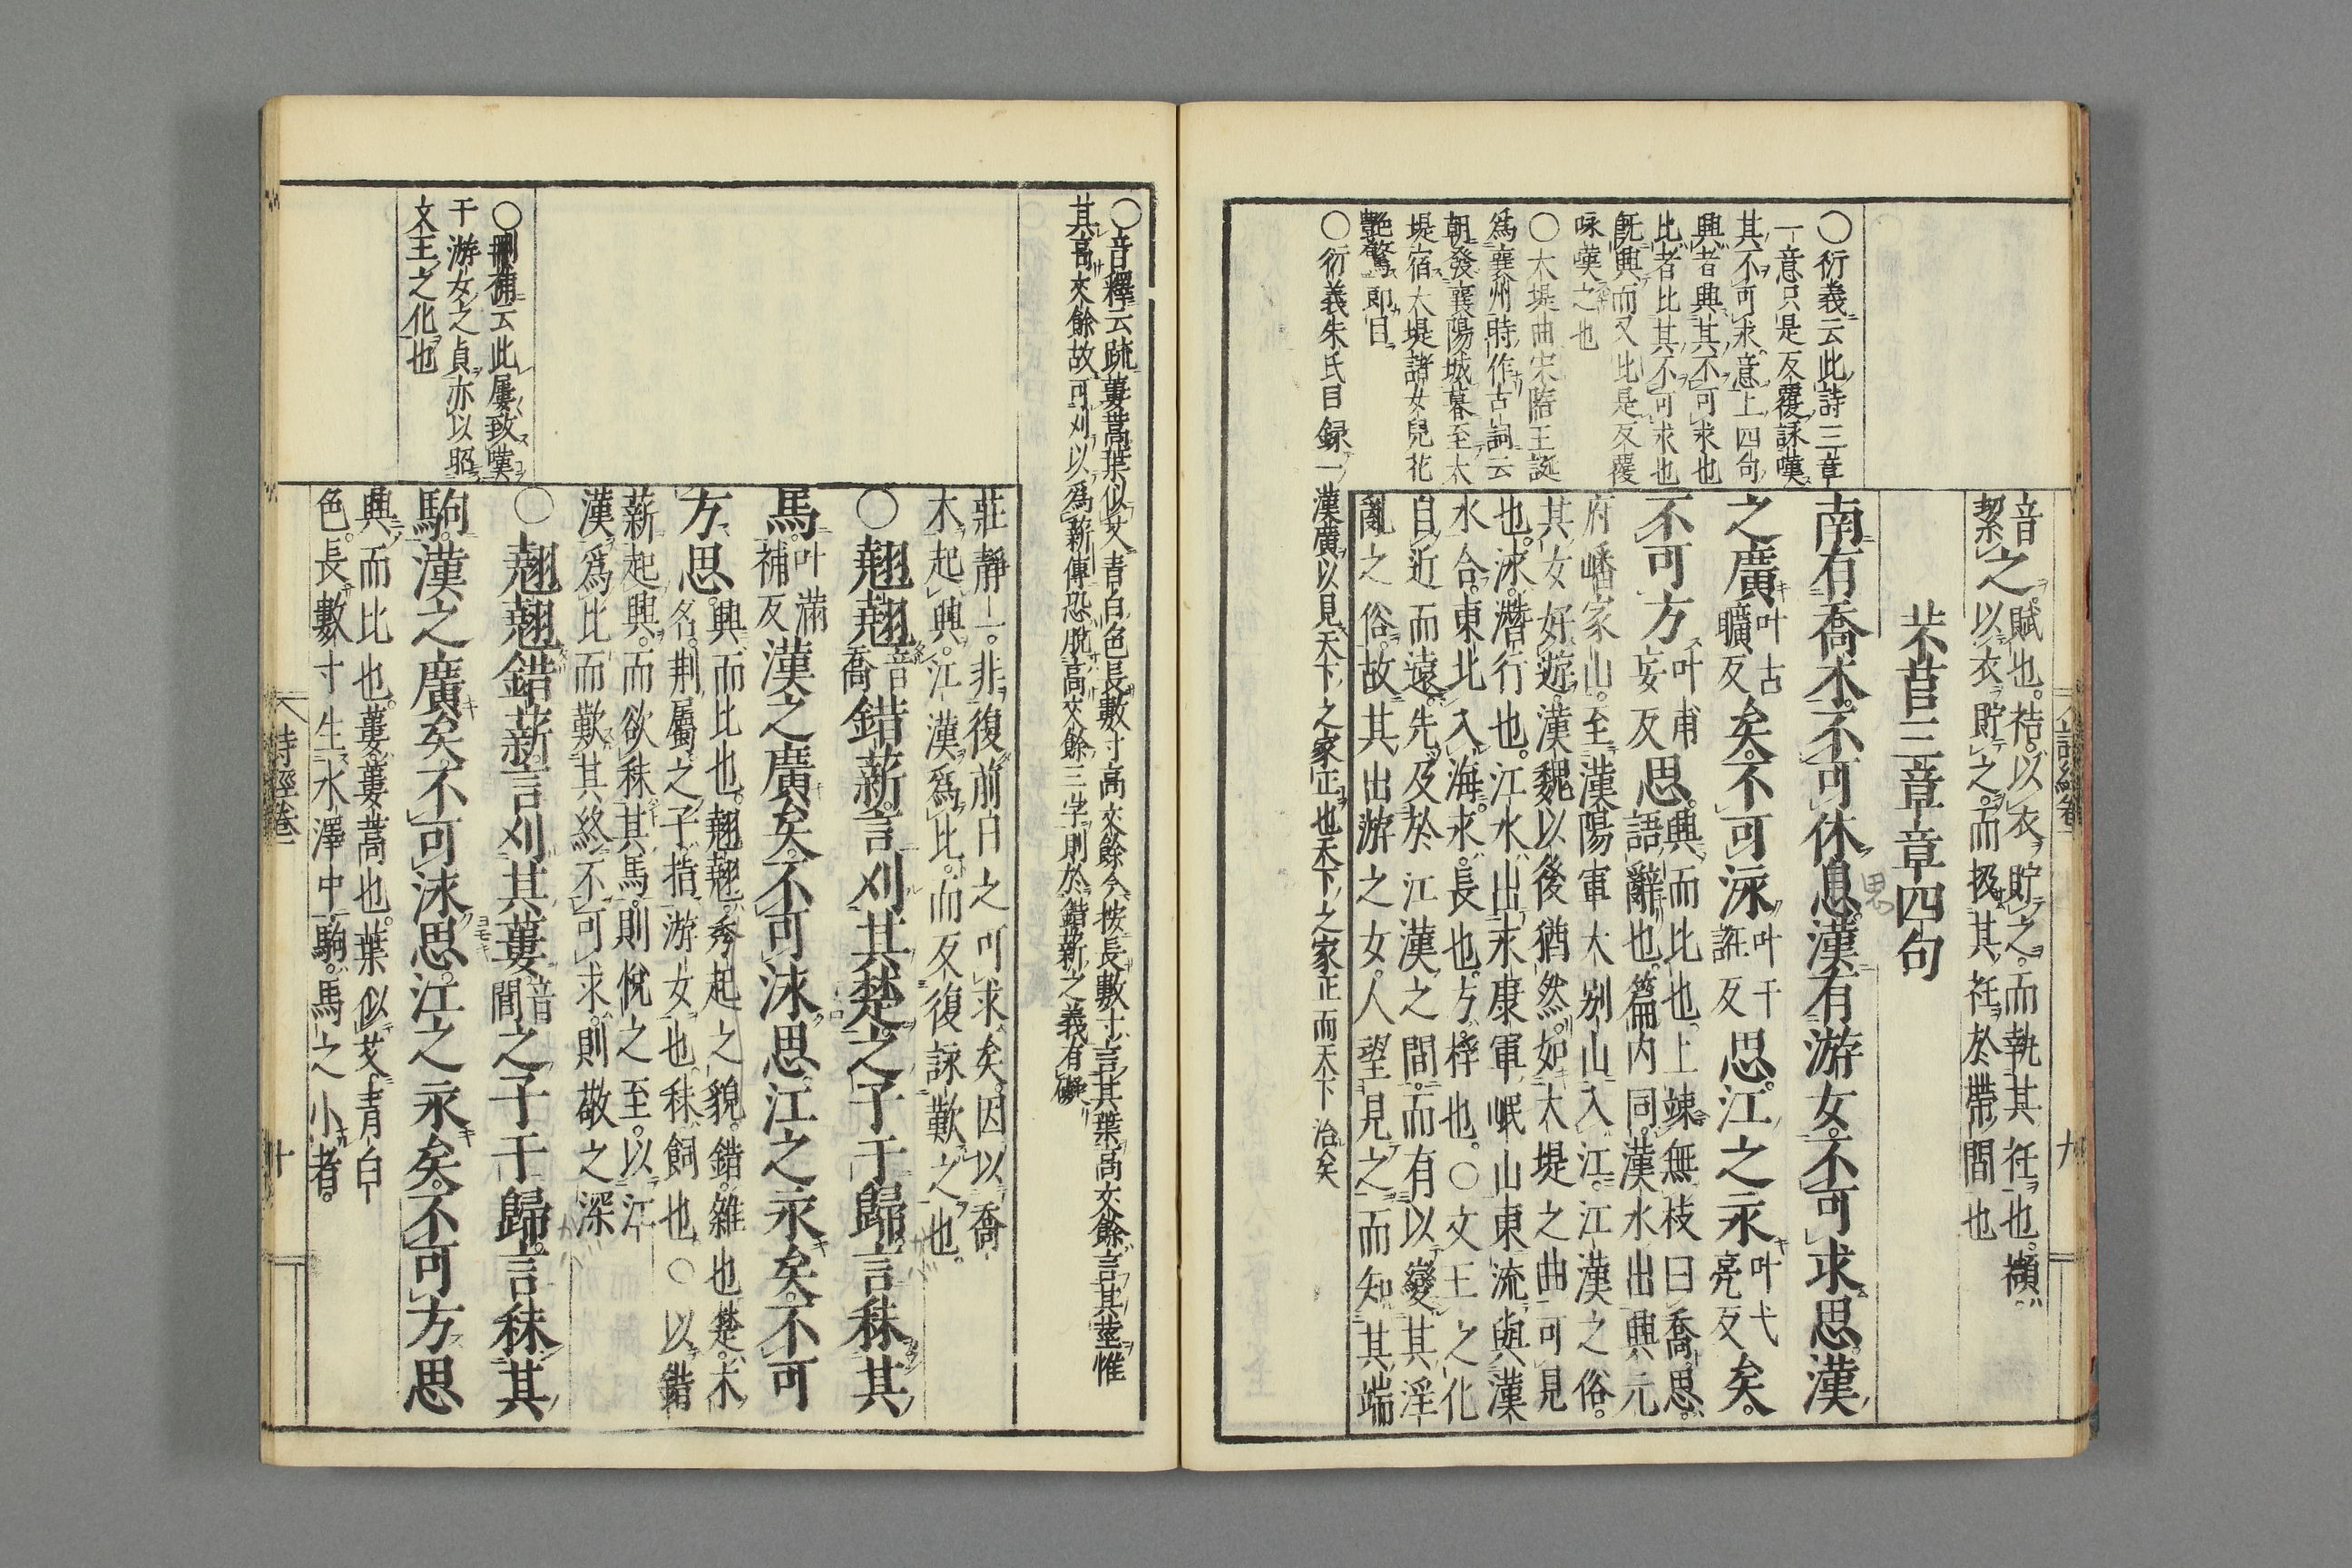 音之。賦也。袺。以衣貯之。而執其衽也。襭。
以衣貯之。而扱其衽於帶間也
芣苢三章章四句
南有喬木。不可休息。漢有游女。不可求思。漢
之廣叶古曠反矣。不可泳叶于誑反思。江之永叶弋亮反矣。
不可方叶甫妄反思。興而比也。上竦無枝曰喬。思。
語辭也。篇內同。漢水出興元
府嶓冢山。至漢陽軍大別山入江。江漢之俗。
其女好遊。漢魏以後猶然。如大堤之曲可見
也。泳。潛行也。江水出永康軍岷山東流與漢
水合。東北入海。永。長也。方。桴也。○文王之化
自近而遠。先及於江漢之間。而有以變其淫
亂之俗。故其出游之女。人望見之。而知其端
○衍義云此詩三章
一意只是反覆詠嘆
其不可求意上四句
興者興其不可求也
比者比其不可求也
既興而又比是反覆
咏嘆之也
○大堤曲宋隋王誕
爲襄州時作古詞云
朝發襄陽城暮至大
堤宿大堤諸女兒花
艷驚郎目
○衍義朱氏目録一漢廣以見天下之家正也天下之家正而天下治矣
思
詩經卷一
九
○音釋云疏蔞蒿葉似艾青白色長數寸高丈餘今按長數寸言其葉高丈餘言其莖惟
其高丈餘故可刈以爲薪傳恐脫高丈餘三字則於錯薪之義有礙
莊靜一。非復前日之可求矣。因以喬
木起興。江漢爲比。而反復詠歎之也。
○翹翹音喬錯薪。言刈其楚。之子于歸。言秣其
馬叶滿補反。漢之廣矣。不可泳思。江之永矣。不可
方思。興而比也。翹翹。秀起之貌。錯。雜也。楚。木
名。荆屬。之子。指游女也。秣。飼也。○以錯
薪起興。而欲秣其馬。則悅之至。以江
漢爲比而歎其終不可求。則敬之深
○翹翹錯薪。言刈其蔞音閭。之子于歸。言秣其
駒。漢之廣矣。不可泳思。江之永矣。不可方思
興而比也。蔞。蔞蒿也。葉似艾。青白
色。長數寸。生水澤中。駒。馬之小者。
○刪補云此屢致嘆
于游女之貞亦以昭
文王之化也
詩經卷一
十